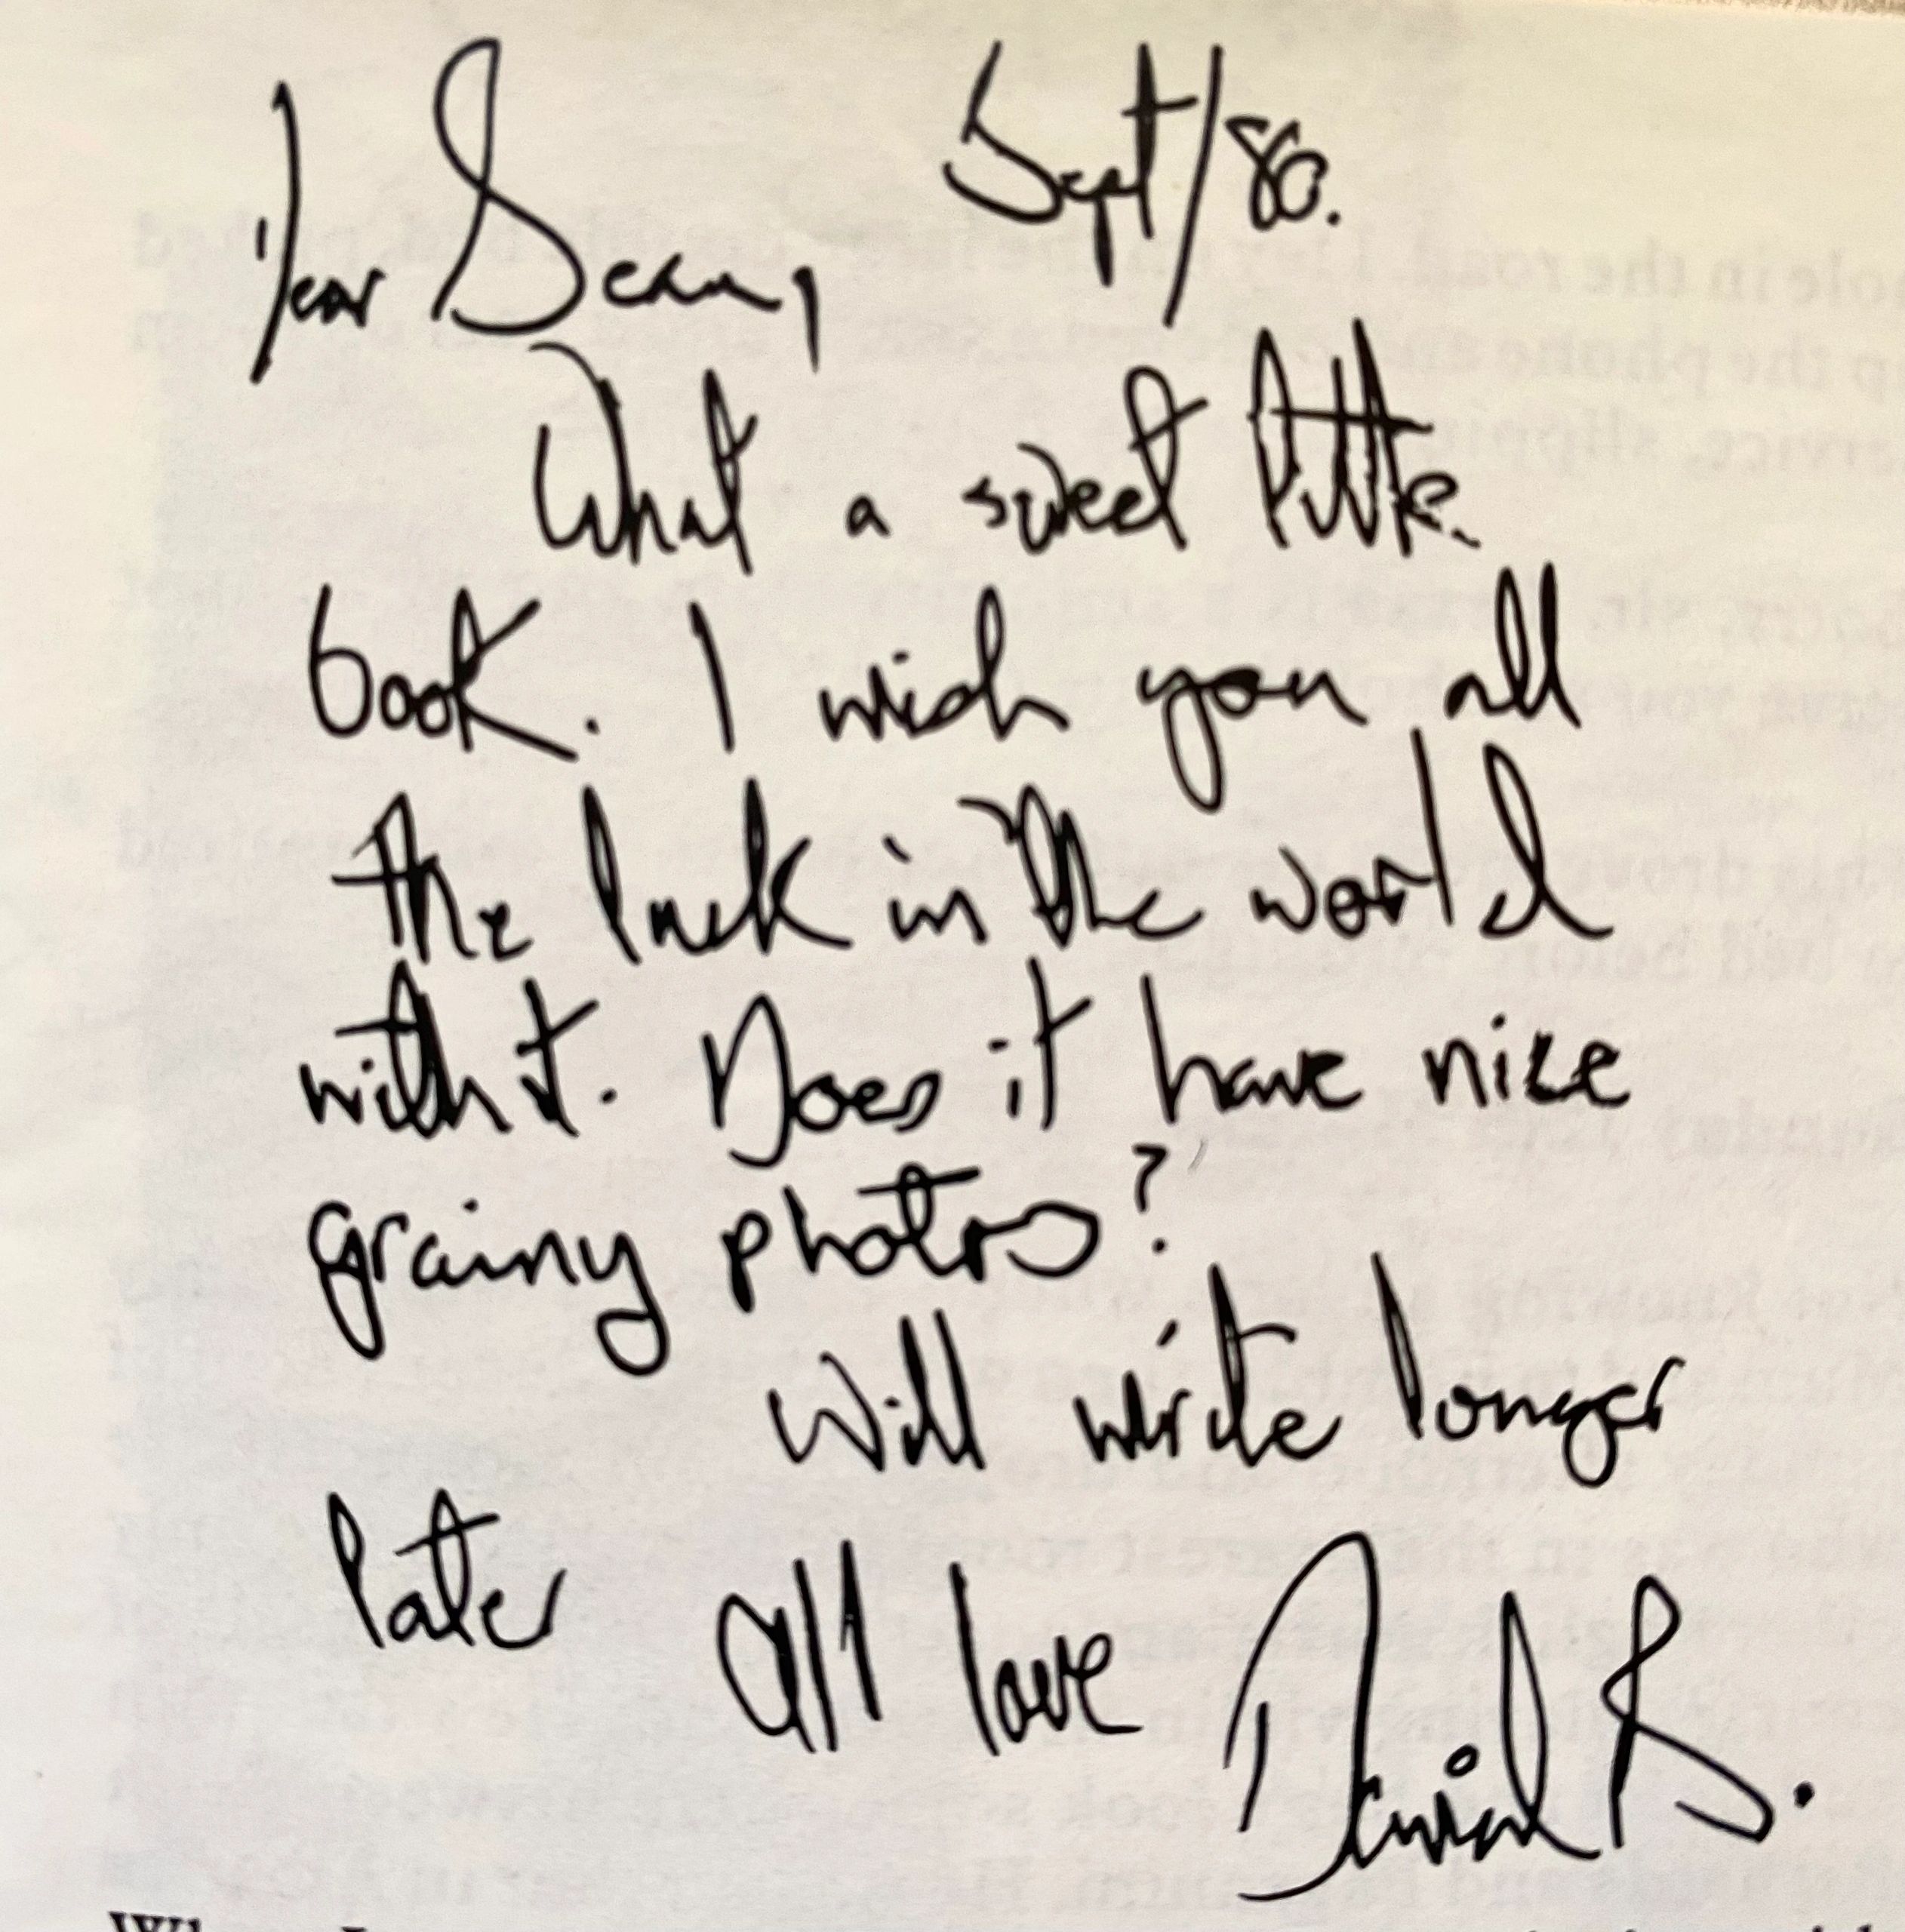 Sept/80.
Dear Sean,
What a sweet little
book. I wish you all
the luck in the world
with it. Does it have nice
grainy photos?
Will write longer
later
All love David B.